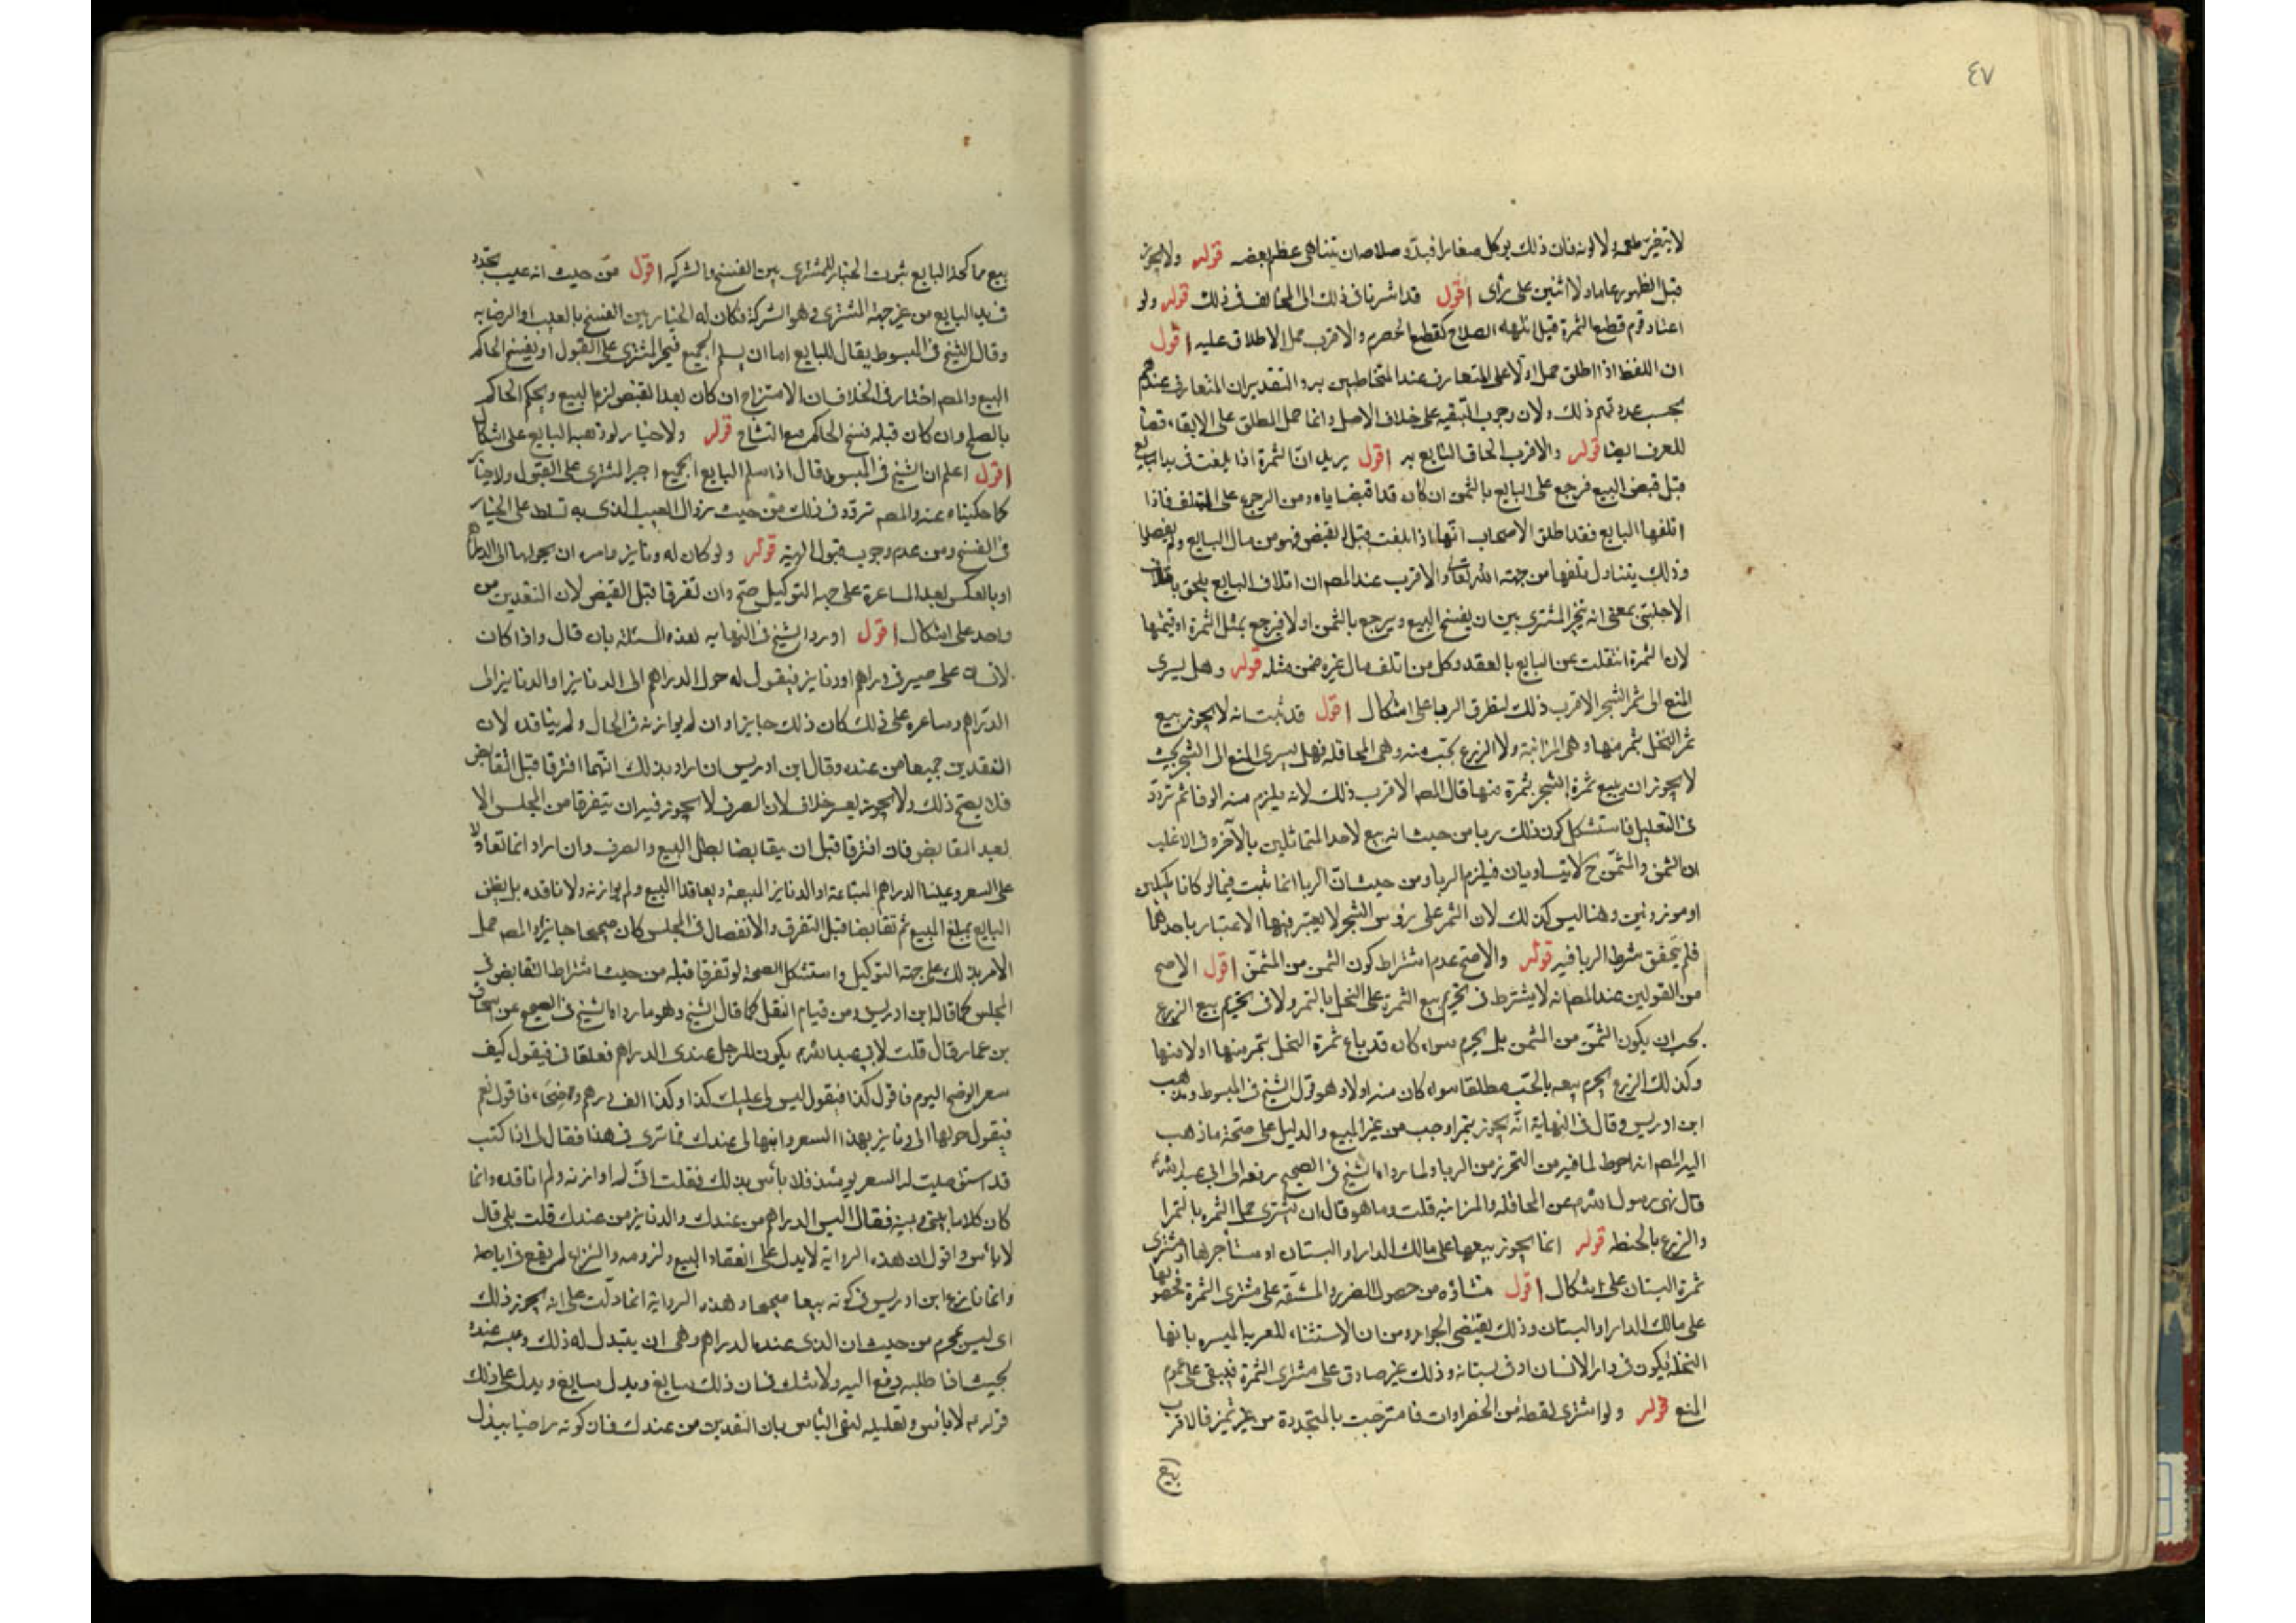 ٤٧
لا يتغير طعمه ولا لونه فان ذلك يوكل صغارا فبدو صلاحه ان يتناهى عظم بعضه قوله ولا يجوز
قبل الظهور عاما ولا اثنين على رأى اقول قد اشرنا فى ذلك الى المخالف فى ذلك قوله ولو
اعتاد قوم قطع الثمرة قبل انتهاء الصلاح كقطع الحصرم والاقرب حمل الاطلاق عليه اقول
ان اللفظ اذا اطلق حمل اولا على المتعارف عند المتخاطبين به والتقدير ان المتعارف عندهم
بحسب عدتهم ذلك ولان وجوب التبقيه على خلاف الاصل وانما حمل المطلق على الابقاء قضاء
للعرف ايضا قوله والاقرب الحاق البايع به اقول يريد ان الثمرة اذا تلفت فى يد البايع
قبل قبض المبيع فرجع على البايع بالثمن ان كان قد اقبضه اياه ومن الرجوع على المتلف فاذا
اتلفها البايع فقد اطلق الاصحاب انها اذا تلفت قبل القبض فهو من مال البايع ولم يفصلوا
وذلك يتناول تلفها من جهته الله تعالى والاقرب عند المصـ ان اتلاف البايع يلحق باتلاف
الاجنبى بمعنى انه يتخير المشترى بين ان يفسخ البيع ويرجع بالثمن اولا فيرجع بمثل الثمرة او قيمتها
لان الثمرة انتقلت عن البايع بالعقد وكل من اتلف مال غيره ضمن مثله قوله وهل يسرى
المنع الى ثمر الشجر الاقرب ذلك لتطرق الربا على اشكال اقول قد ثبت انه لا يجوز بيع
ثمر النخل بتمر منها وهى المزابنة ولا الزرع بحب منه وهى المحاقله فهل يسرى المنع الى الشجر بحيث
لا يجوز ان يبيع ثمرة الشجر بثمرة منها قال المصـ الاقرب ذلك لانه يلزم منه الوفا ثم تردد
فى التعليل فاستشكل كون ذلك ربا من حيث انه بيع لاحد المتماثلين بالآخر وفى الاغلب
ان الثمن والمثمن ح لا يتساويان فيلزم الربا ومن حيث ان الربا انما ثبت فيما لو كانا مكيلين
او موزونين وهنا ليس كذلك لان الثمر على رؤس الشجر لا يعتبر فيها الاعتبار باحدهما
فلم يتحقق شرط الربا فيه قوله والاصح عدم اشتراط كون الثمن من المثمن اقول الاصح
من القولين عند المصـ انه لا يشترط فى تحريم بيع الثمرة على النخل بالتمر ولا فى تحريم بيع الزرع
بحب ان يكون الثمن من المثمن بل يحرم سواء كان قد باع ثمرة النخل بتمر منها اولا منها
وكذلك الزرع يحرم بيعه بالحب مطلقا سواء كان منه اولا وهو قول الشيخ فى المبسوط ومذهب
ابن ادريس وقال فى النهاية انه يجوز بتمر او حب من غير المبيع والدليل على صحة ما ذهب
اليه المصـ انه احوط لما فيه من التحرز من الربا ولما رواه الشيخ فى الصحيح يرفعه الى ابى عبد الله ع
قال نهى رسول الله ص عن المحاقله والمزابنه قلت وما هو قال ان يشترى حمل الثمره بالتمر
والزرع بالحنطه قوله انما يجوز بيعها على مالك الدار او البستان او مستأجرها او مشترى
ثمرة البستان على اشكال اقول منشاؤه من حصول الضرر والمشقه على مشترى الثمرة كحصولها
على مالك الدار او البستان وذلك يقتضى الجواز ومن ان الاستثناء للعريا المفسره بانها
النخله يكون فى دار الانسان او فى بستانه وذلك غير صادق على مشترى الثمرة فيبقى على عموم
المنع قوله ولو اشترى لقطه من الخضراوات فامتزجت بالمتجددة من غير تميز فالاقرب
بيع مما كحد البايع ثبوت الخيار للمشترى بين الفسخ والشركه اقول من حيث انه عيب تجدد
فى يد البايع من غير جهة المشترى وهو الشركة فكان له الخيار بين الفسخ بالعيب او الرضا به
وقال الشيخ فى المبسوط يقال للبايع اما ان يسلم الجميع فيجبر المشترى على القبول او يفسخ الحاكم
البيع والمصـ اختار فى الخلاف ان الامتزاج ان كان بعد القبض لزم البيع ويحكم الحاكم
بالصلح وان كان قبله فسخ الحاكم مع التشاح قوله ولا خيار لو وهبه البايع على اشكال
اقول اعلم ان الشيخ فى المبسوط قال اذا سلم البايع الجميع اجبر المشترى على القبول ولا خيار
كما حكيناه عنه والمصـ تردد فى ذلك من حيث زوال العيب الذى به تسلط على الخيار
فى الفسخ ومن عدم وجوب قبول الهبة قوله ولو كان له دنانير فامره ان يحولها الى الدراهم
او بالعكس بعد المساعرة على جهة التوكيل صح وان تفرقا قبل القبض لان النقدين من
واحد على اشكال اقول اورد الشيخ فى النهايه هذه المسئلة بان قال واذا كان
لانسان على صيرفى دراهم او دنانير فيقول له حول الدراهم الى الدنانير او الدنانير الى
الدراهم وساعره على ذلك كان ذلك جايزا وان لم يوازنه فى الحال ولم يناقده لان
النقدين جميعا من عنده وقال ابن ادريس ان اراد بذلك انهما افترقا قبل التقابض
فلا يصح ذلك ولا يجوز بغير خلاف لان الصرف لا يجوز فيه ان يتفرقا من المجلس الا
بعد التقابض فان افترقا قبل ان يتقابضا بطل البيع والصرف وان اراد انما تعاولا
على السعر وعينا الدراهم المبتاعة او الدنانير المبيعة وتعاقدا البيع ولم يوازنه ولا ناقده بل يطلق
البايع مبلغ المبيع ثم تقابضا قبل التفرق والانفصال فى المجلس كان صحيحا جايزا والمصـ حمل
الامر بذلك على جهة التوكيل واستشكل الصحة لو تفرقا قبله من حيث اشتراط التقابض فى
المجلس كما قاله ابن ادريس ومن قيام النقل كما قال الشيخ وهو ما رواه الشيخ فى الصحيح عن اسحاق
بن عمار قال قلت لابى عبد الله ع يكون للرجل عندى الدراهم فيلقانى فيقول كيف
سعر الوضح اليوم فاقول كذا فيقول اليس لى عليك كذا وكذا الف درهم وضحا، فاقول نعم
فيقول حولها الى دنانير بهذا السعر واثبتها لى عندك فما ترى فى هذا فقال لى اذا كنت
قد استقصيت له السعر يومئذ فلا بأس بذلك فقلت انى لم اوازنه ولم اناقده وانما
كان كلاما بينى وبينه فقال اليس الدراهم من عندك والدنانير من عندك قلت بلى قال
لا بأس واقول ان هذه الرواية لا يدل على انعقاد البيع ولزومه والنزاع لم يقع فى اباحته
وانما نازع ابن ادريس فى كونه بيعا صحيحا وهذه الرواية انما دلت على انه يجوز ذلك
اى ليس بمحرم من حيث ان الذى عنده الدراهم وهى ان يتبدل له ذلك وعينه عنده
بحيث اذا طلبه دفع اليه ولا شك فى ان ذلك سايغ وبدل سايغ ويدل على ذلك
قوله ع لا بأس وتعليله لنفى البأس بان النقدين من عندك فان كونه راضيا ببذل